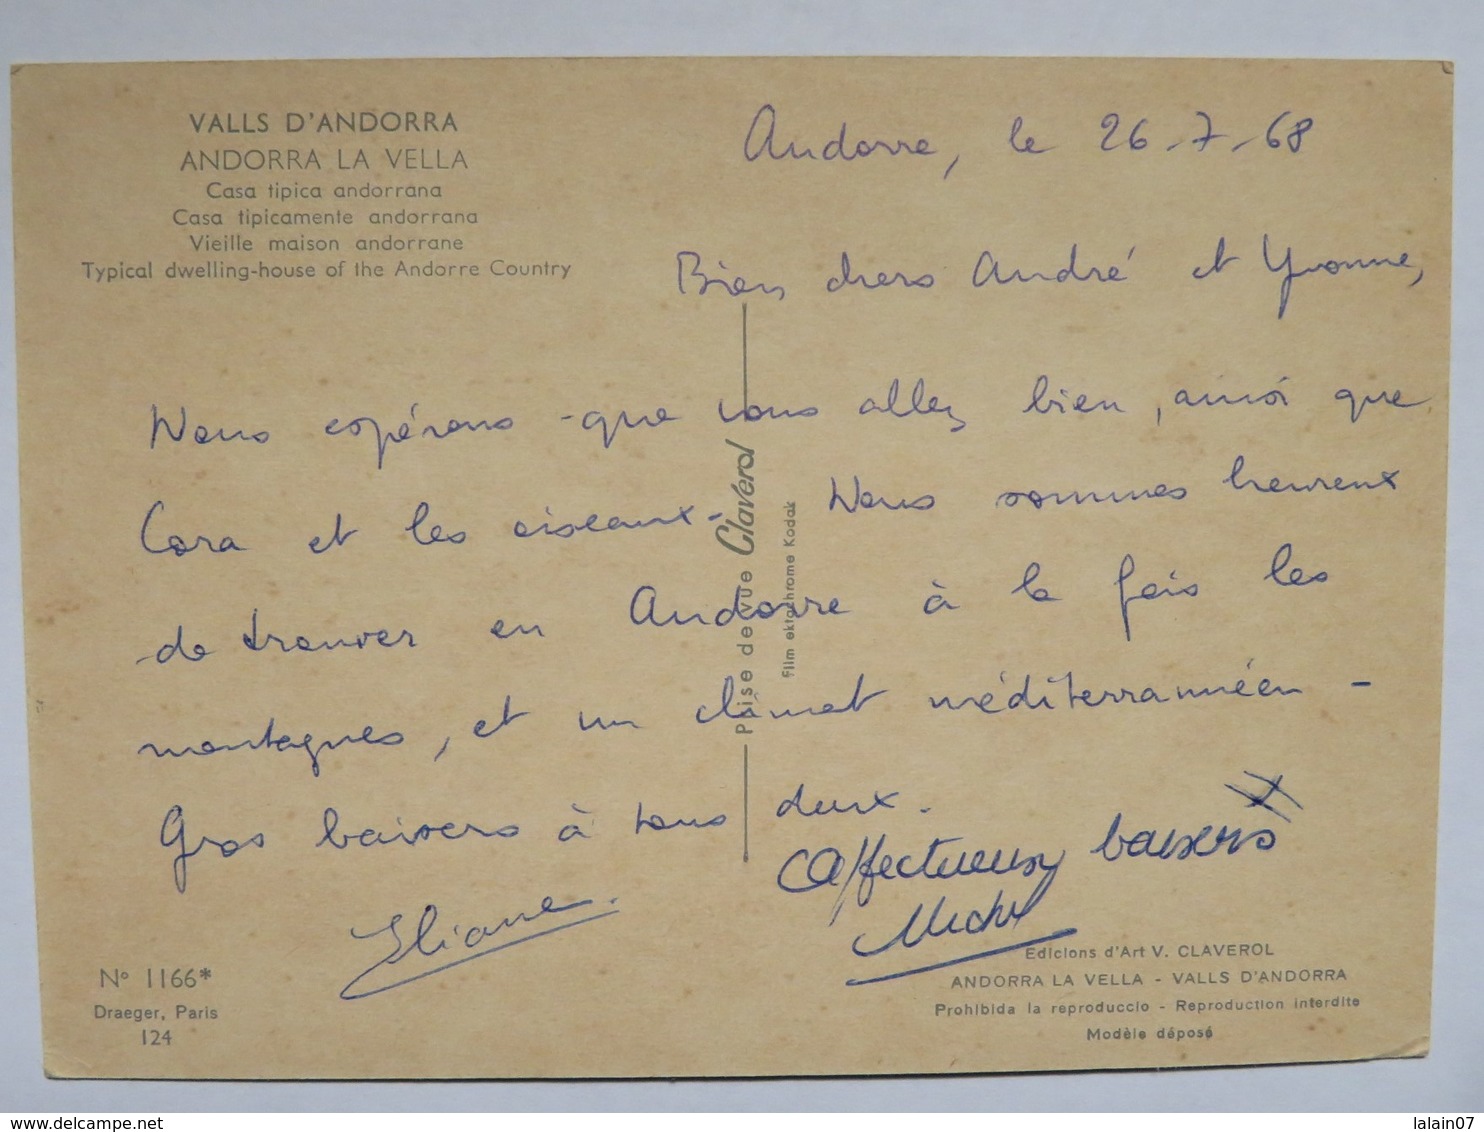 VALLS D'ANDORRA
ANDORRA LA VELLA
Casa tipica andorrana
Casa tipicamente andorrana
Vieille maison andorrane
Typical dwelling-house of the Andorre Country
Andorre, le 26-7-68
Bien chers André et Yvonne,
Nous espérons que vous allez bien, ainsi que
Cora et les oiseaux. Nous sommes heureux
de trouver en Andorre à la fois les
montagnes, et un climat méditerrannéen -
Gros baisers à tous deux.
Affectueux baisers
Eliane.
Michel
Prise de vue Claverol
Film ektachrome Kodak
Nº 1166*
Draeger, Paris
124
Edicions d'Art V. CLAVEROL
ANDORRA LA VELLA - VALLS D'ANDORRA
Prohibida la reproduccio - Reproduction interdite
Modèle déposé
www.delcampe.net
lalain07